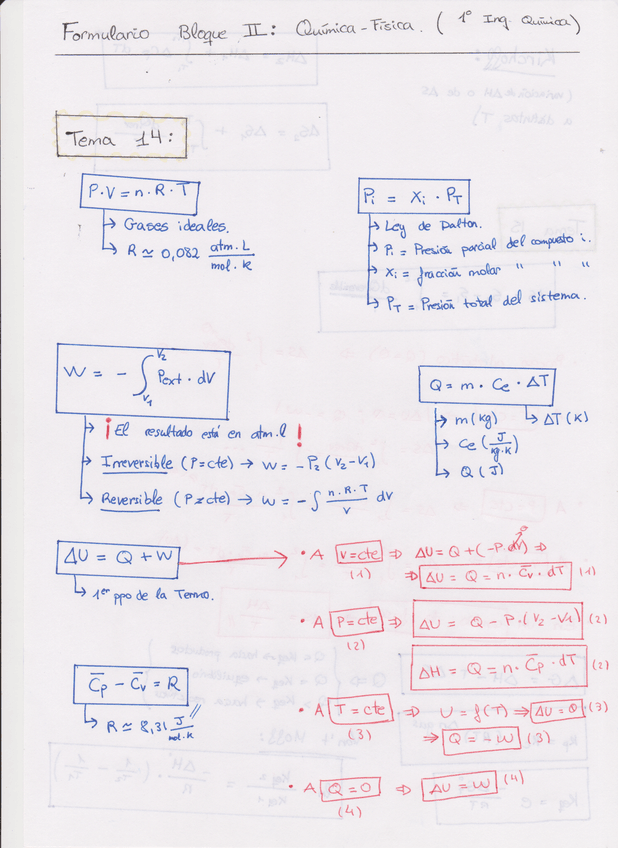 Formulario Bloque II: Química-Física. (1º Ing. Química)
Tema 14:
P·V = n·R·T
↳ Gases ideales.
↳ R ≃ 0,082 atm.L / mol.K
Pi = Xi · PT
↳ Ley de Dalton.
↳ Pi = Presión parcial del compuesto i.
↳ Xi = fracción molar " " "
↳ PT = Presión total del sistema.
W = - ∫V1V2 Pext · dV
↳ ¡El resultado está en atm.l!
↳ Irreversible (P=cte) → W = -P2 (V2-V1)
↳ Reversible (P≠cte) → W = -∫ n.R.T / V dV
Q = m · Ce · ΔT
↳ m (kg) ↳ ΔT (K)
↳ Ce (J / kg·K)
↳ Q (J)
ΔU = Q + W
↳ 1er ppo de la Termo.
· A V=cte ⇒ ΔU = Q + (-P·dV) ⇒ 0
(1) ⇒ ΔU = Q = n·C̅v·dT (1)
· A P=cte ⇒ ΔU = Q - P·(V2-V1) (2)
(2)
ΔH = Q = n·C̅p·dT (2)
C̅p - C̅v = R
↳ R ≃ 8,31 J / mol.K
· A T=cte ⇒ U = f(T) ⇒ ΔU = 0 (3)
(3) ⇒ Q = -W (3)
· A Q=0 ⇒ ΔU = W (4)
(4)